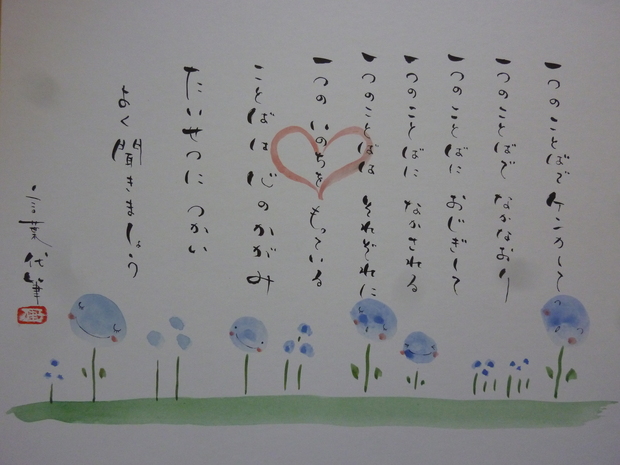 一つのことばでケンカして
一つのことばでなかなおり
一つのことばにおじぎして
一つのことばになかされる
一つのことばはそれぞれに
一つのいのちをもっている
ことばは心のかがみ
たいせつにつかい
よく聞きましょう
言葉代筆